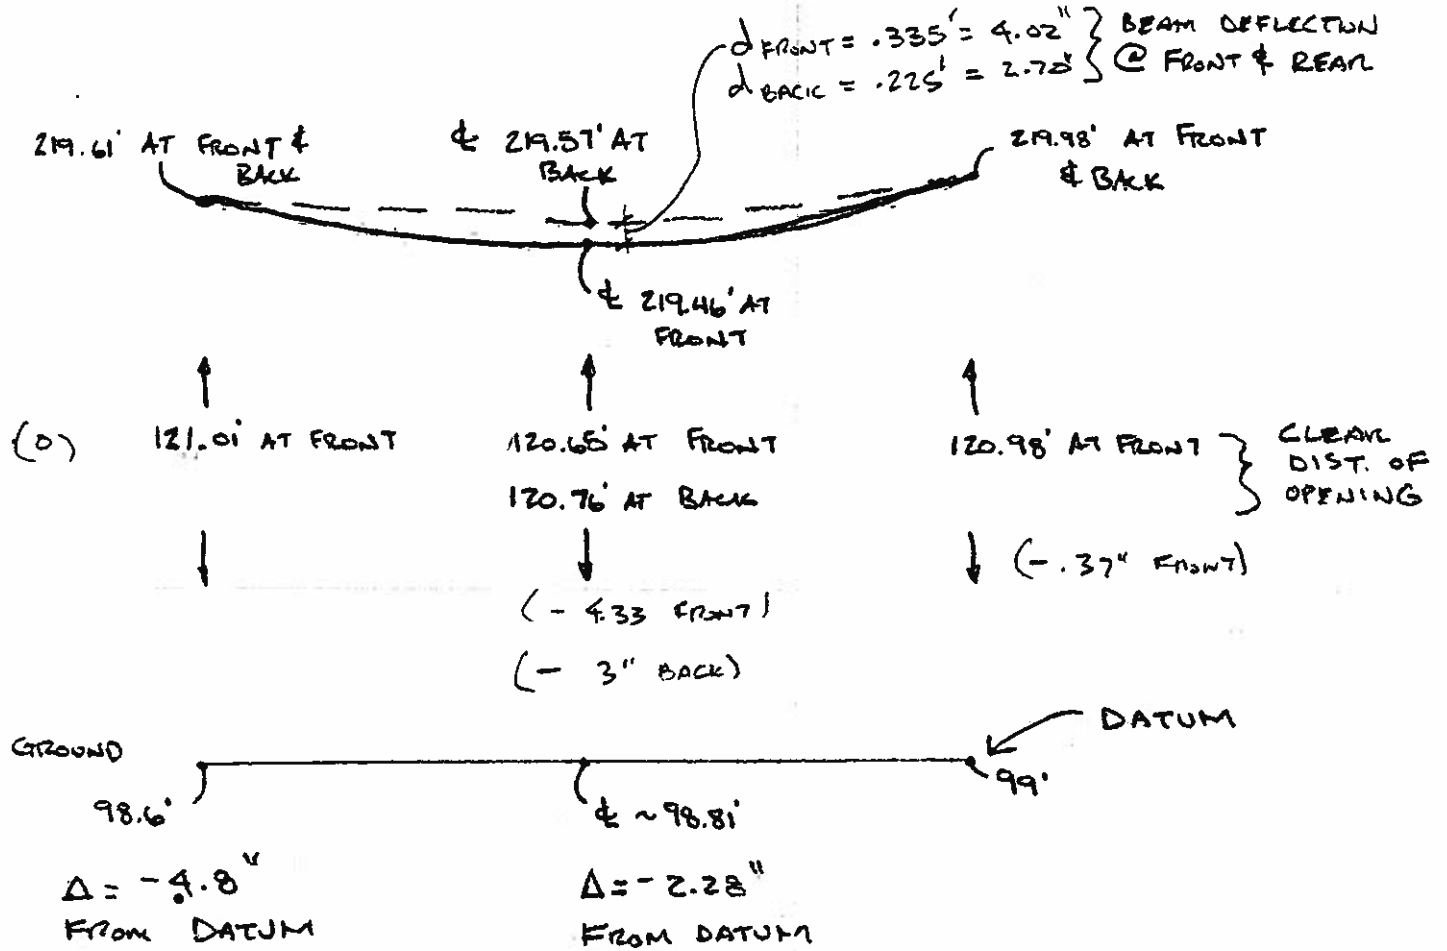 d FRONT = .335' = 4.02" } BEAM DEFLECTION
d BACK = .225' = 2.70" } @ FRONT & REAR
219.61' AT FRONT &
BACK
℄ 219.57' AT
BACK
219.98' AT FRONT
& BACK
℄ 219.46' AT
FRONT
(0)
121.01' AT FRONT
120.65' AT FRONT
120.76' AT BACK
120.98' AT FRONT
CLEAR
DIST. OF
OPENING
(- .37" FRONT)
(- 4.33 FRONT)
(- 3" BACK)
DATUM
GROUND
98.6'
℄ ~ 98.81'
99'
Δ = -4.8"
FROM DATUM
Δ = - 2.28"
FROM DATUM